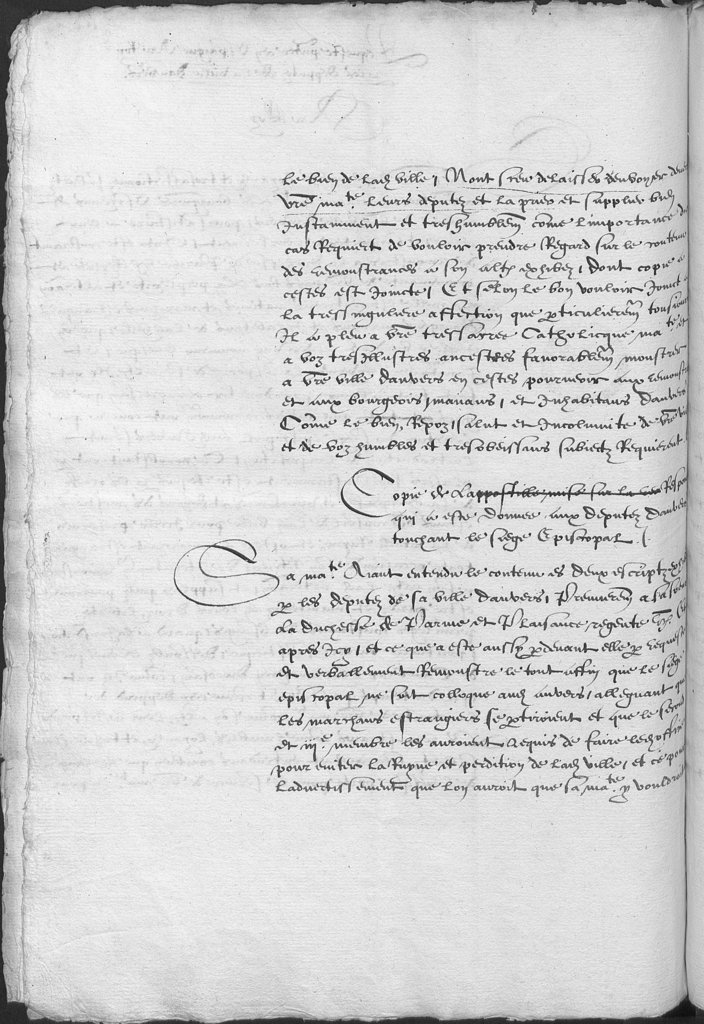 le bien de ladz ville / Nont sceu delaisser denvoyer
vre ma.te leurs deputez et la prier et supplier bien
Instamment et treshumblemt come limportance du
cas Requiert de vouloir prendre Regard sur le contenu
des remonstrances a son altze exhibez / dont copie a
cestes est Joincte / Et selon le bon vouloir Joinct a
la tressinguliere affection que particulieremt tousiours
Il a pleu a vre tressacree Catholicque ma.te et
a voz tresillustres ancestres favorablemt monstrer
a vre ville danvers en cestes pourveoir aux remonst
et aux bourgeois / manans / et Inhabitans danvers
Come le bien, Repoz / salut et Incolumite de vre
et de voz humbles et tresobeissans subiectz Requierent /
Copie de Lappostille mise sur la
qui a este donnee aux deputez danvers
touchant le siege Episcopal /.
Sa ma.te Aiant entendu le contenu es deux escriptz
par les deputez de sa ville danvers / Premieremt a
La duchesse de Parme et Plaisance, regente
apres Icy / et ce que a este aussy pardevant elle par requeste
et verballement Remonstre le tout affin que le siege
episcopal ne soit colloque audz anvers / alleguant que
les marchans estrangiers se partiroient et que le second
et iij.e membre les auroient requis de faire ledz office
pour eviter la Ruyne et perdition de ladz ville / et ce pour
Ladvertissement que lon auroit que sa ma.te y vouldroit